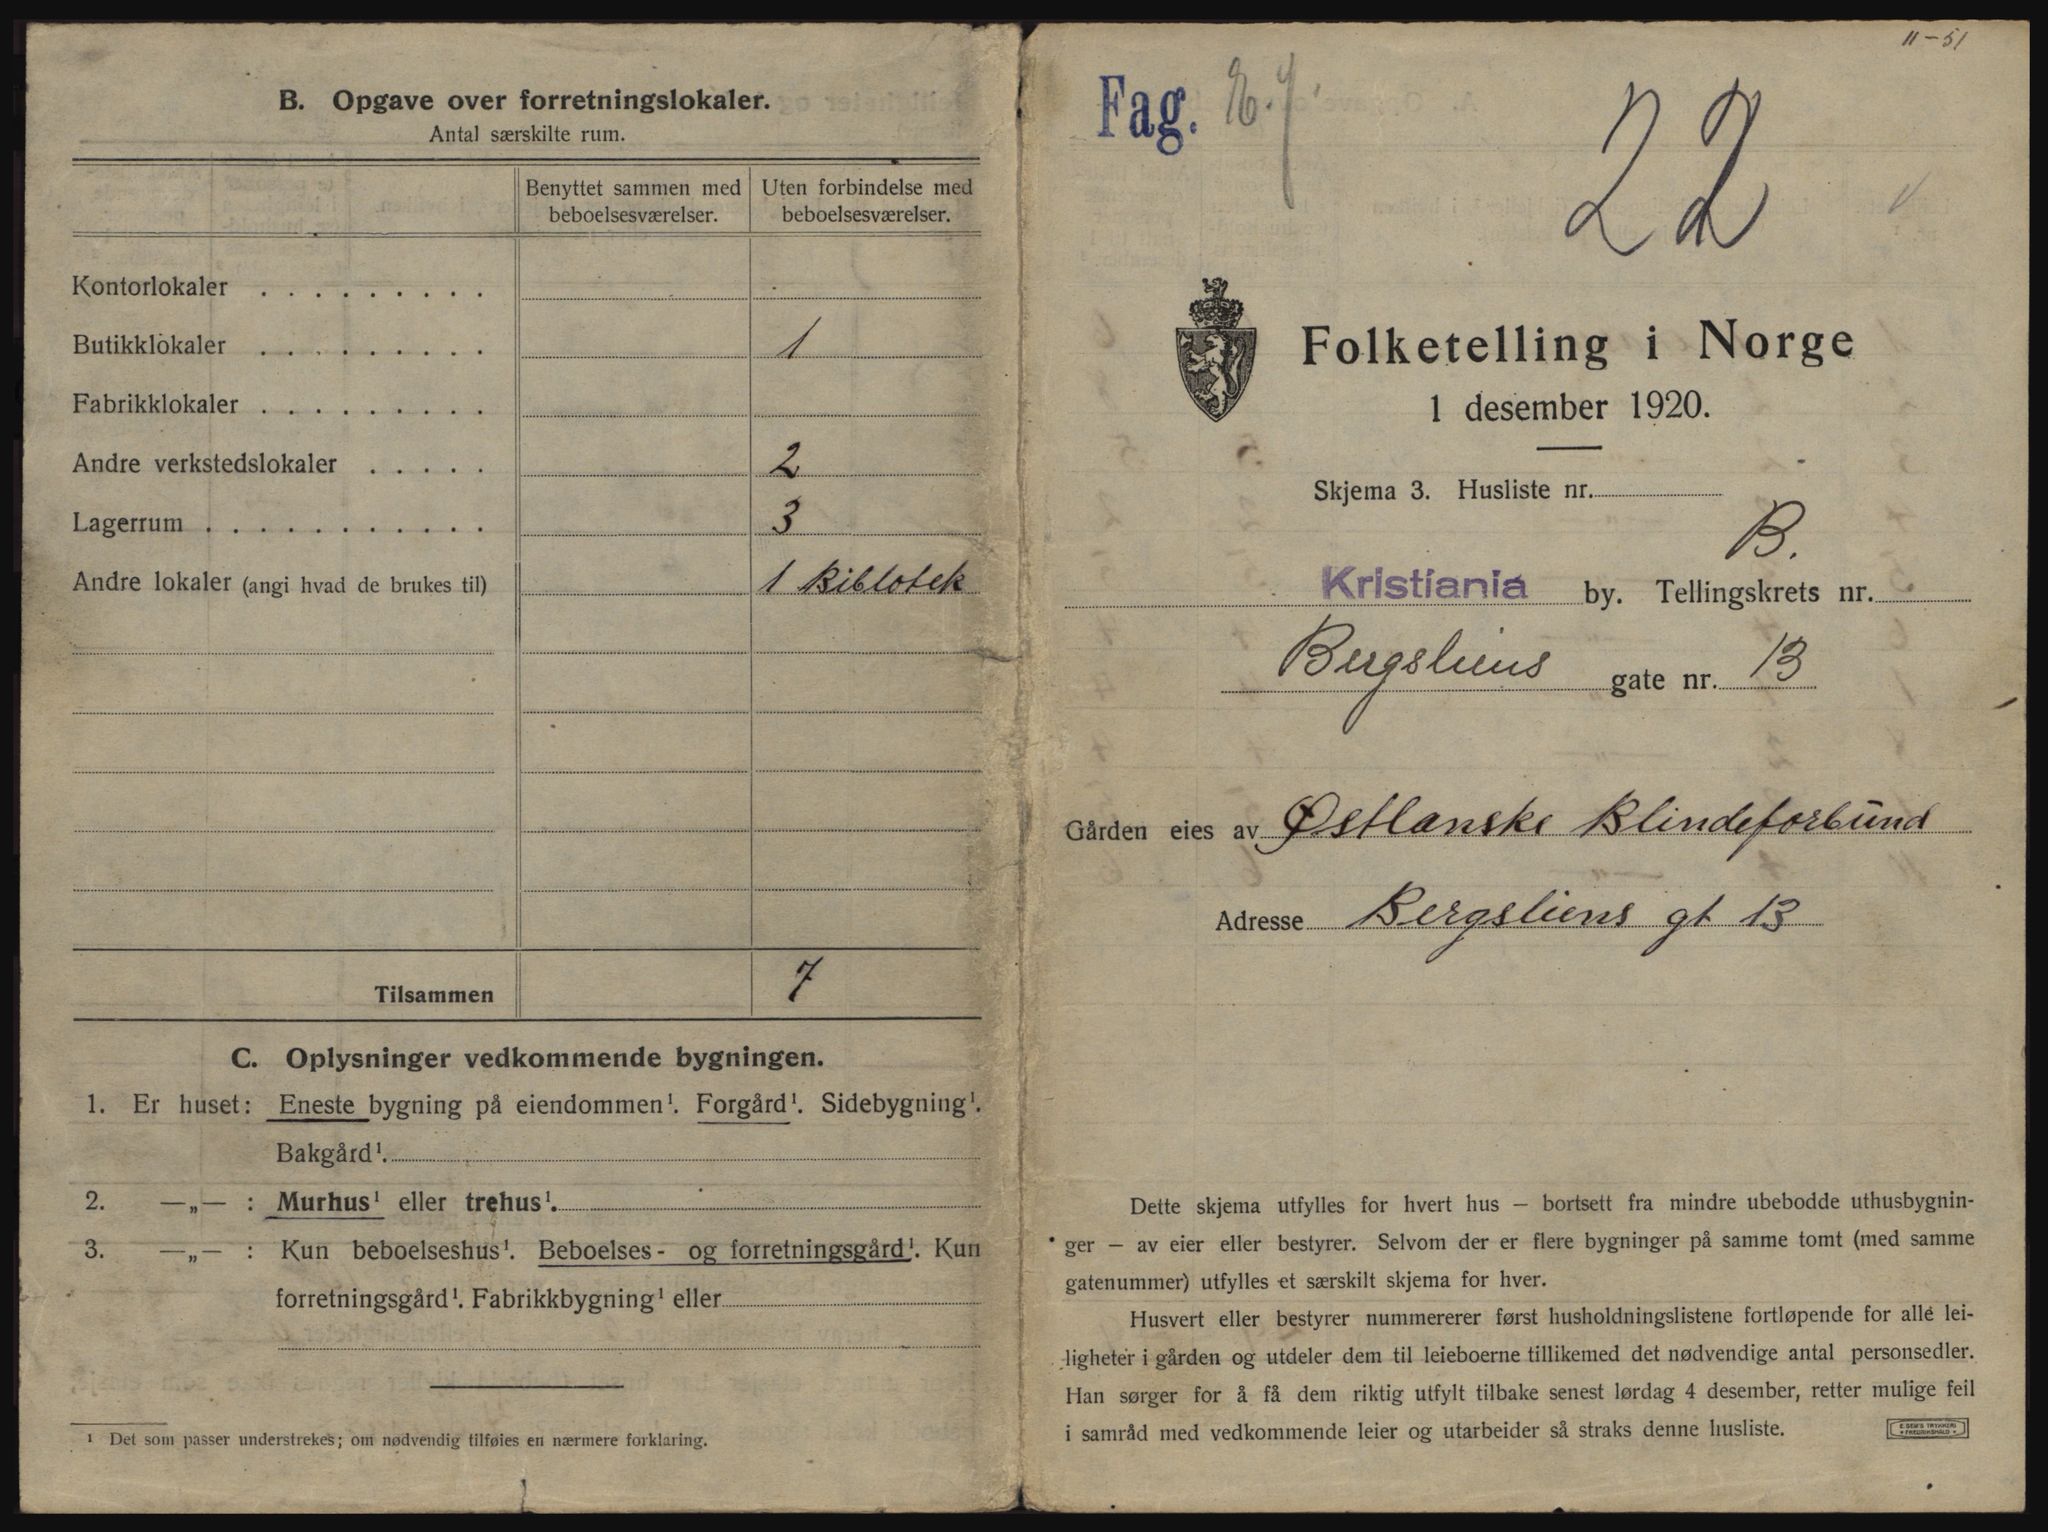 B. Opgave over forretningslokaler.
Antal særskilte rum.
Benyttet sammen med beboelsesværelser.
Uten forbindelse med beboelsesværelser.
Kontorlokaler . . . . . . . . .
Butikklokaler . . . . . . . . . 1
Fabrikklokaler . . . . . . . . .
Andre verkstedslokaler . . . . . 2
Lagerrum . . . . . . . . . . . . 3
Andre lokaler (angi hvad de brukes til) 1 Biblotek
Tilsammen 7
C. Oplysninger vedkommende bygningen.
1. Er huset: Eneste bygning på eiendommen¹. Forgård¹. Sidebygning¹.
Bakgård¹.
2. —„— : Murhus¹ eller trehus¹.
3. —„— : Kun beboelseshus¹. Beboelses- og forretningsgård¹. Kun
forretningsgård¹. Fabrikkbygning¹ eller
¹ Det som passer understrekes; om nødvendig tilføies en nærmere forklaring.
11-51
Fag.
22
Folketelling i Norge
1 desember 1920.
Skjema 3. Husliste nr.
B.
Kristiania by. Tellingskrets nr.
Bergsliens gate nr. 13
Gården eies av Østlanske Blindeforbund
Adresse Bergsliens gt 13
Dette skjema utfylles for hvert hus – bortsett fra mindre ubebodde uthusbygnin-
ger – av eier eller bestyrer. Selvom der er flere bygninger på samme tomt (med samme
gatenummer) utfylles et særskilt skjema for hver.
Husvert eller bestyrer nummererer først husholdningslistene fortløpende for alle lei-
ligheter i gården og utdeler dem til leieboerne tillikemed det nødvendige antal personsedler.
Han sørger for å få dem riktig utfylt tilbake senest lørdag 4 desember, retter mulige feil
i samråd med vedkommende leier og utarbeider så straks denne husliste.
E. SEM'S TRYKKERI
FREDRIKSHALD